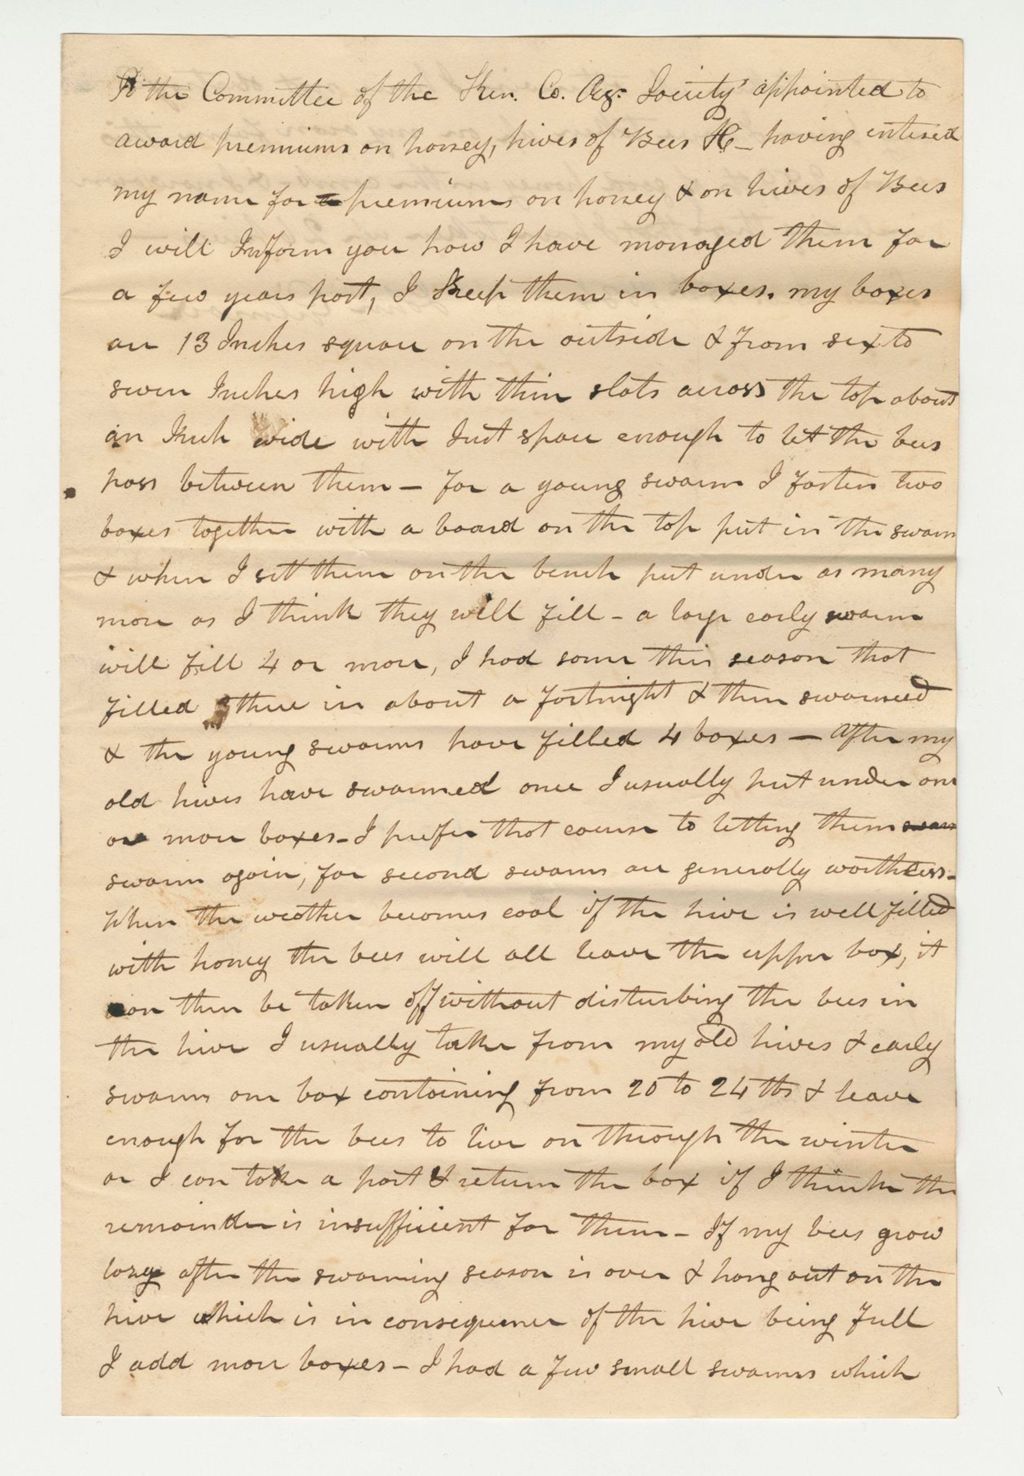 To the Committee of the Ken. Co. Ag. Society appointed to
award premiums on honey, hives of Bees &c - having entered
my name for premiums on honey & on hives of Bees
I will Inform you how I have managed them for
a few years past, I Keep them in boxes. my boxes
are 13 Inches square on the outside & from six to
seven Inches high with thin slats across the top about
an Inch wide with Just space enough to let the bees
pass between them — for a young swarm I fasten two
boxes together with a board on the top put in the swarm
& when I set them on the bench put under as many
more as I think they will fill - a large early swarm
will fill 4 or more, I had some this season that
filled three in about a fortnight & then swarmed
& the young swarms have filled 4 boxes — After my
old hives have swarmed once I usually put under one
or more boxes - I prefer that course to letting them swarm
swarm again, for second swarms are generally worthless -
When the weather becomes cool if the hive is well filled
with honey the bees will all leave the upper box, it
can then be taken off without disturbing the bees in
the hive I usually take from my old hives & early
swarms one box containing from 20 to 24 lbs & leave
enough for the bees to live on through the winter
or I can take a part & return the box if I think the
remainder is insufficient for them - If my bees grow
lazy after the swarming season is over & hang out on the
hive which is in consequence of the hive being full
I add more boxes - I had a few small swarms which